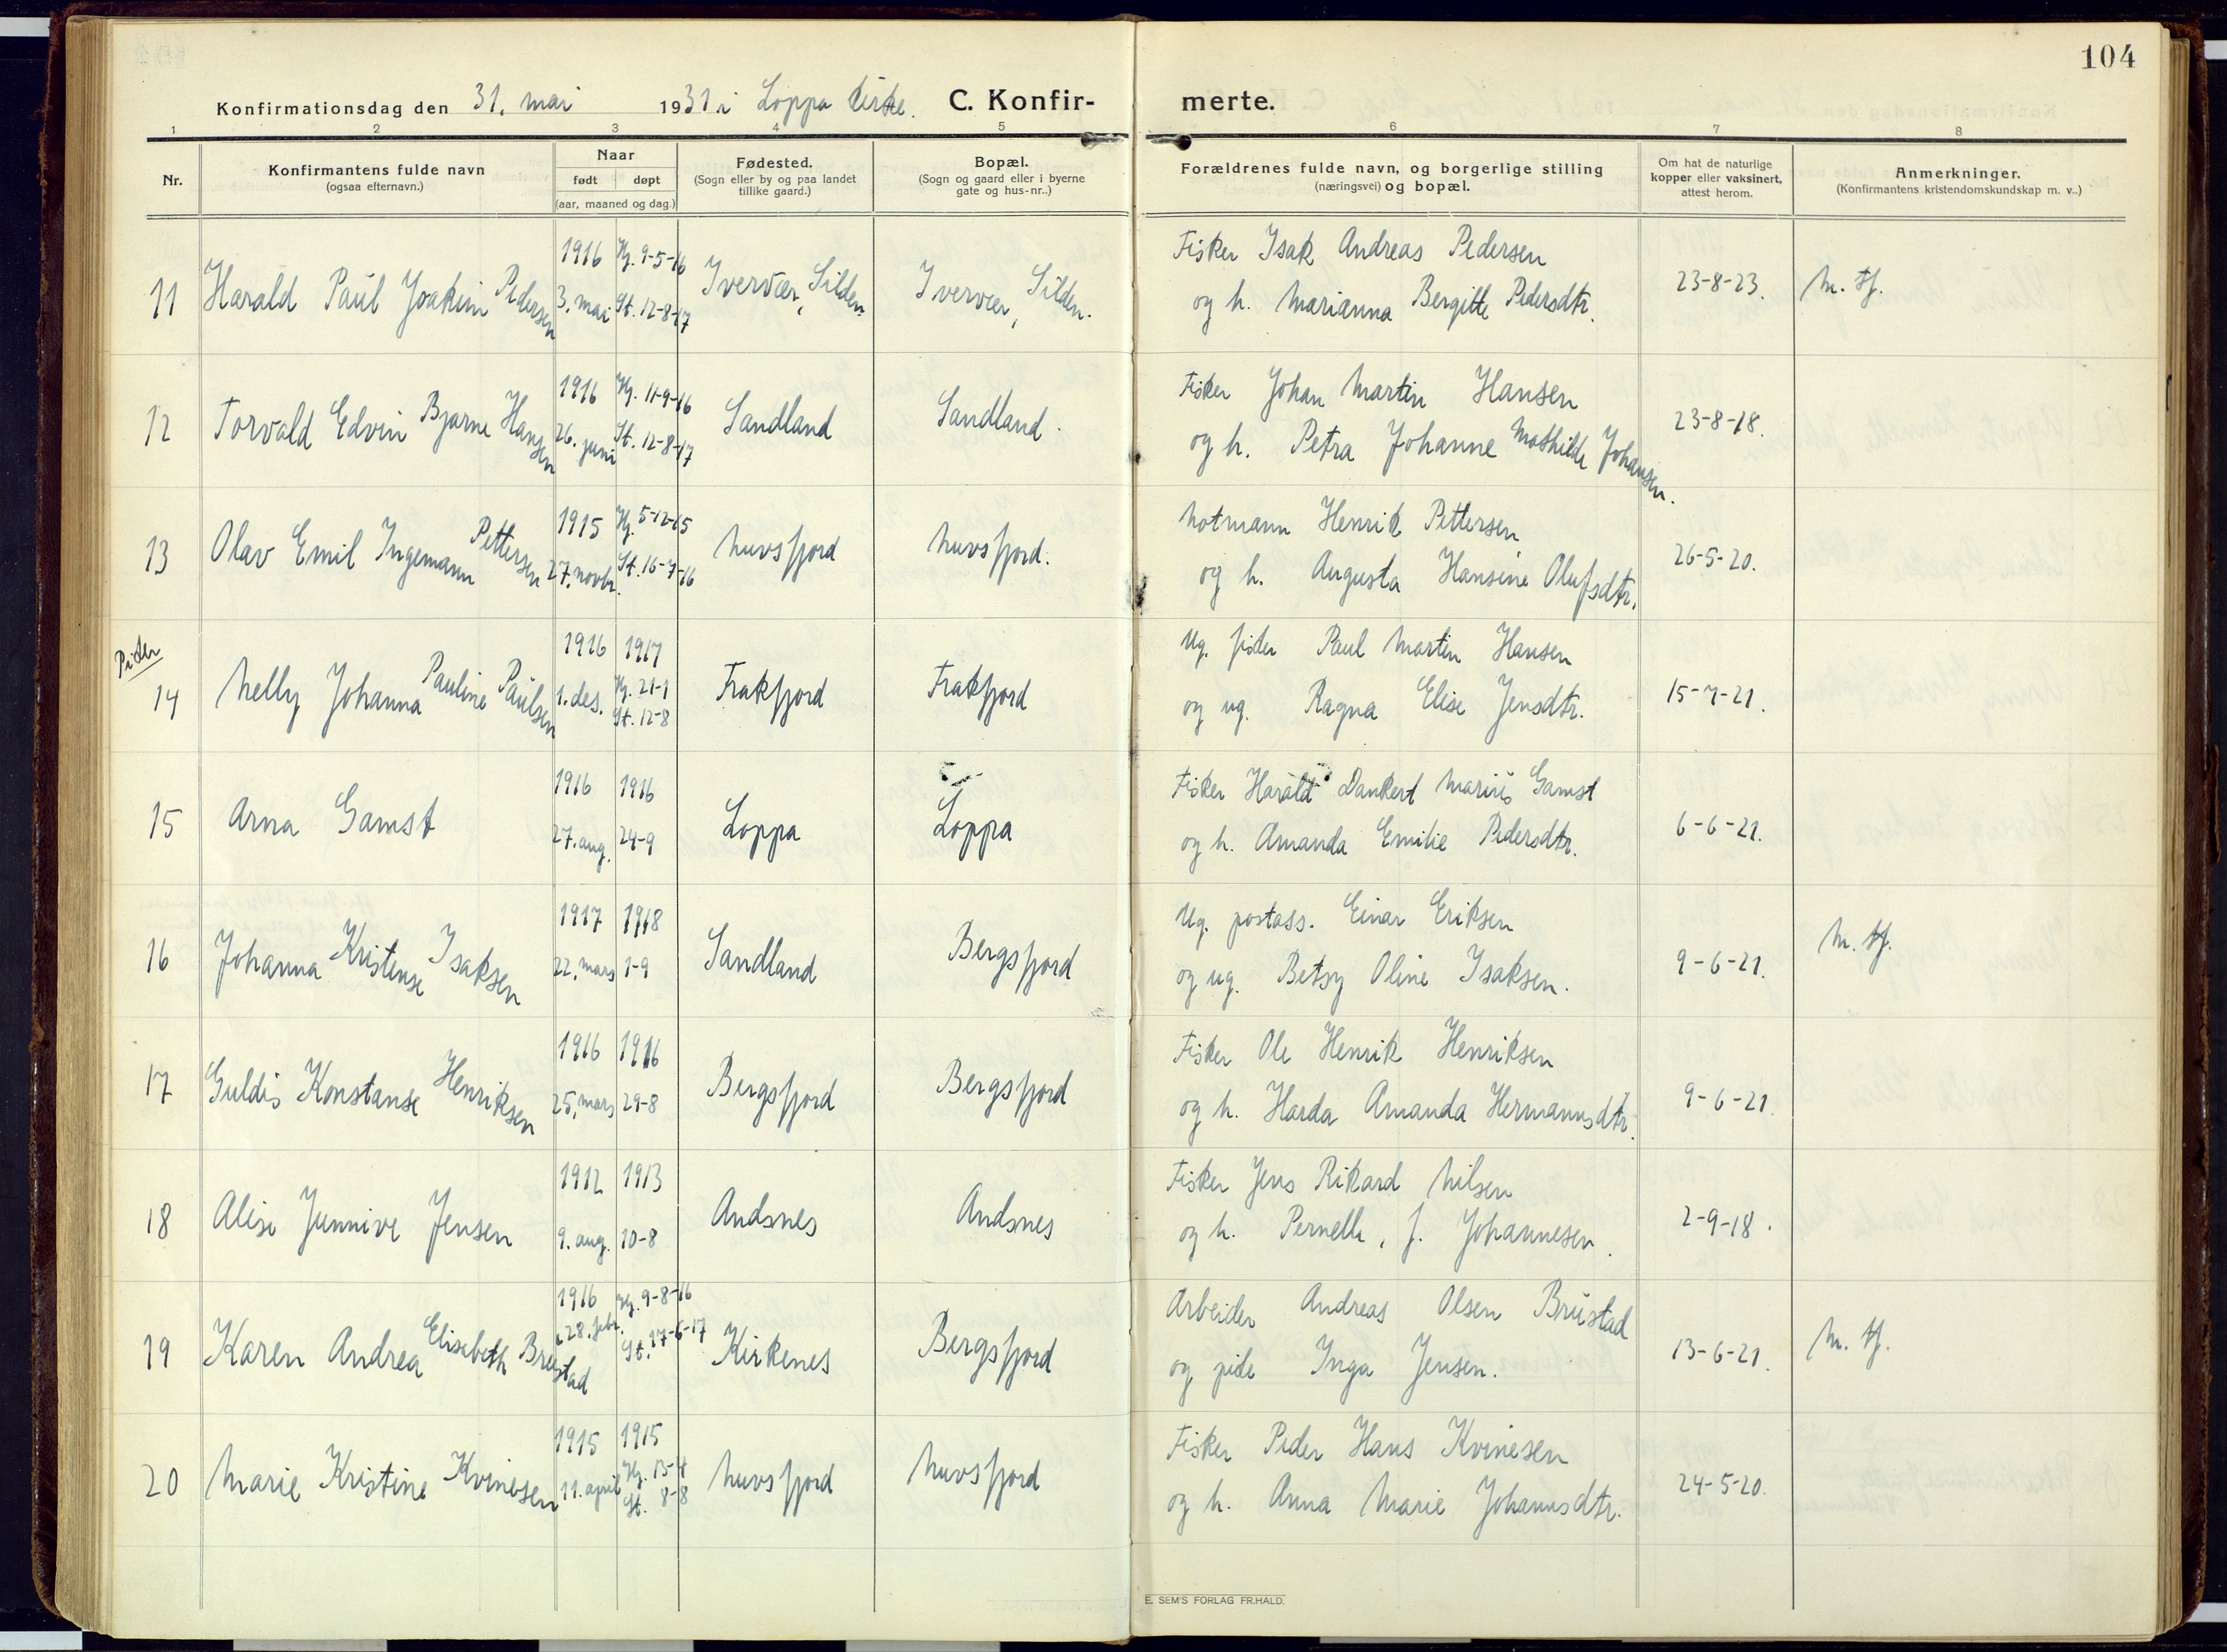 104
Konfirmationsdag den 31. mai 1931 i Loppa kirke. C. Konfir- merte.
1 2 3 4 5 6 7 8
Nr.
Konfirmantens fulde navn
(ogsaa efternavn.)
Naar
født døpt
(aar, maaned og dag.)
Fødested.
(Sogn eller by og paa landet
tillike gaard.)
Bopæl.
(Sogn og gaard eller i byerne
gate og hus-nr..)
Forældrenes fulde navn, og borgerlige stilling
(næringsvei) og bopæl.
Om hat de naturlige
kopper eller vaksinert,
attest herom.
Anmerkninger.
(Konfirmantens kristendomskundskap m. v..)
11 Harald Paul Joakim Pedersen
1916 Hj. 9-5-16
3. mai St. 12-8-17
Ivervær, Silden.
Ivervær, Silden.
Fisker Isak Andreas Pedersen
og h. Marianna Bergitte Pedersdtr.
23-8-23.
M. tf.
12 Torvald Edvin Bjarne Hansen
1916 Hj. 11-9-16
26. juni St. 12-8-17
Sandland
Sandland.
Fisker Johan Martin Hansen
og h. Petra Johanne Mathilde Johansen.
23-8-18.
13 Olav Emil Ingemann Pettersen
1915 Hj. 5-12-15
27. novbr. St. 16-7-16
Nuvsfjord
Nuvsfjord.
Notmann Henrik Pettersen
og h. Augusta Hansine Olufsdtr.
26-5-20.
Piker
14 Nelly Johanna Pauline Paulsen
1916 1917
1. des. Hj. 21-1
St. 12-8
Frakfjord
Frakfjord
Ug. fisker Paul Martin Hansen
og ug. Ragna Elise Jensdtr.
15-7-21.
15 Arna Gamst
1916 1916
27. aug. 24-9
Loppa
Loppa
Fisker Harald Dankert Marius Gamst
og h. Amanda Emilie Pedersdtr.
6-6-21.
16 Johanna Kristense Isaksen
1917 1918
22. mars 1-9
Sandland
Bergsfjord
Ug. postass. Einar Eriksen
og ug. Betsy Oline Isaksen.
9-6-21.
M. tf.
17 Guldis Konstanse Henriksen
1916 1916
25. mars 29-8
Bergsfjord
Bergsfjord
Fisker Ole Henrik Henriksen
og h. Harda Amanda Hermannsdtr.
9-6-21.
18 Alise Jennive Jensen
1912 1913
9. aug. 10-8
Andsnes
Andsnes
Fisker Jens Rikard Nilsen
og h. Pernelle, f. Johannesen.
2-9-18.
19 Karen Andrea Elisabeth Brustad
1916 Hj. 9-8-16
28. febr. St. 17-6-17
Kirkenes
Bergsfjord
Arbeider Andreas Olsen Brustad
og pike Inga Jensen.
13-6-21.
M. tf.
20 Marie Kristine Kvinesen
1915 1915
11. april Hj. 13-4
St. 8-8
Nuvsfjord
Nuvsfjord
Fisker Peder Hans Kvinesen
og h. Anna Marie Johannsdtr.
24-5-20.
E. SEM'S FORLAG FR.HALD.